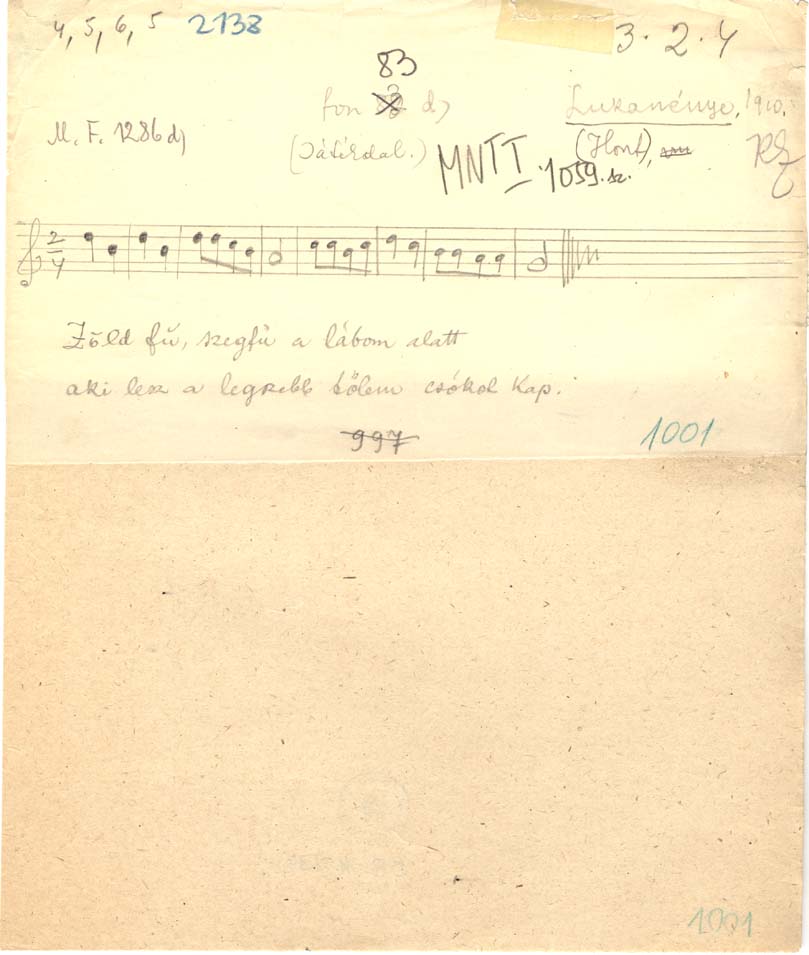 4, 5, 6, 5 2138
3·2·4
83
fon d)
Lukanénye, 1910.
M. F. 1286 d)
(Játékdal.)
(Hont),
MNT I. 1059. sz.
2
4
Zőld fű, szegfű a lábom alatt
aki lesz a legszebb tőlem csókol kap.
997
1001
1001